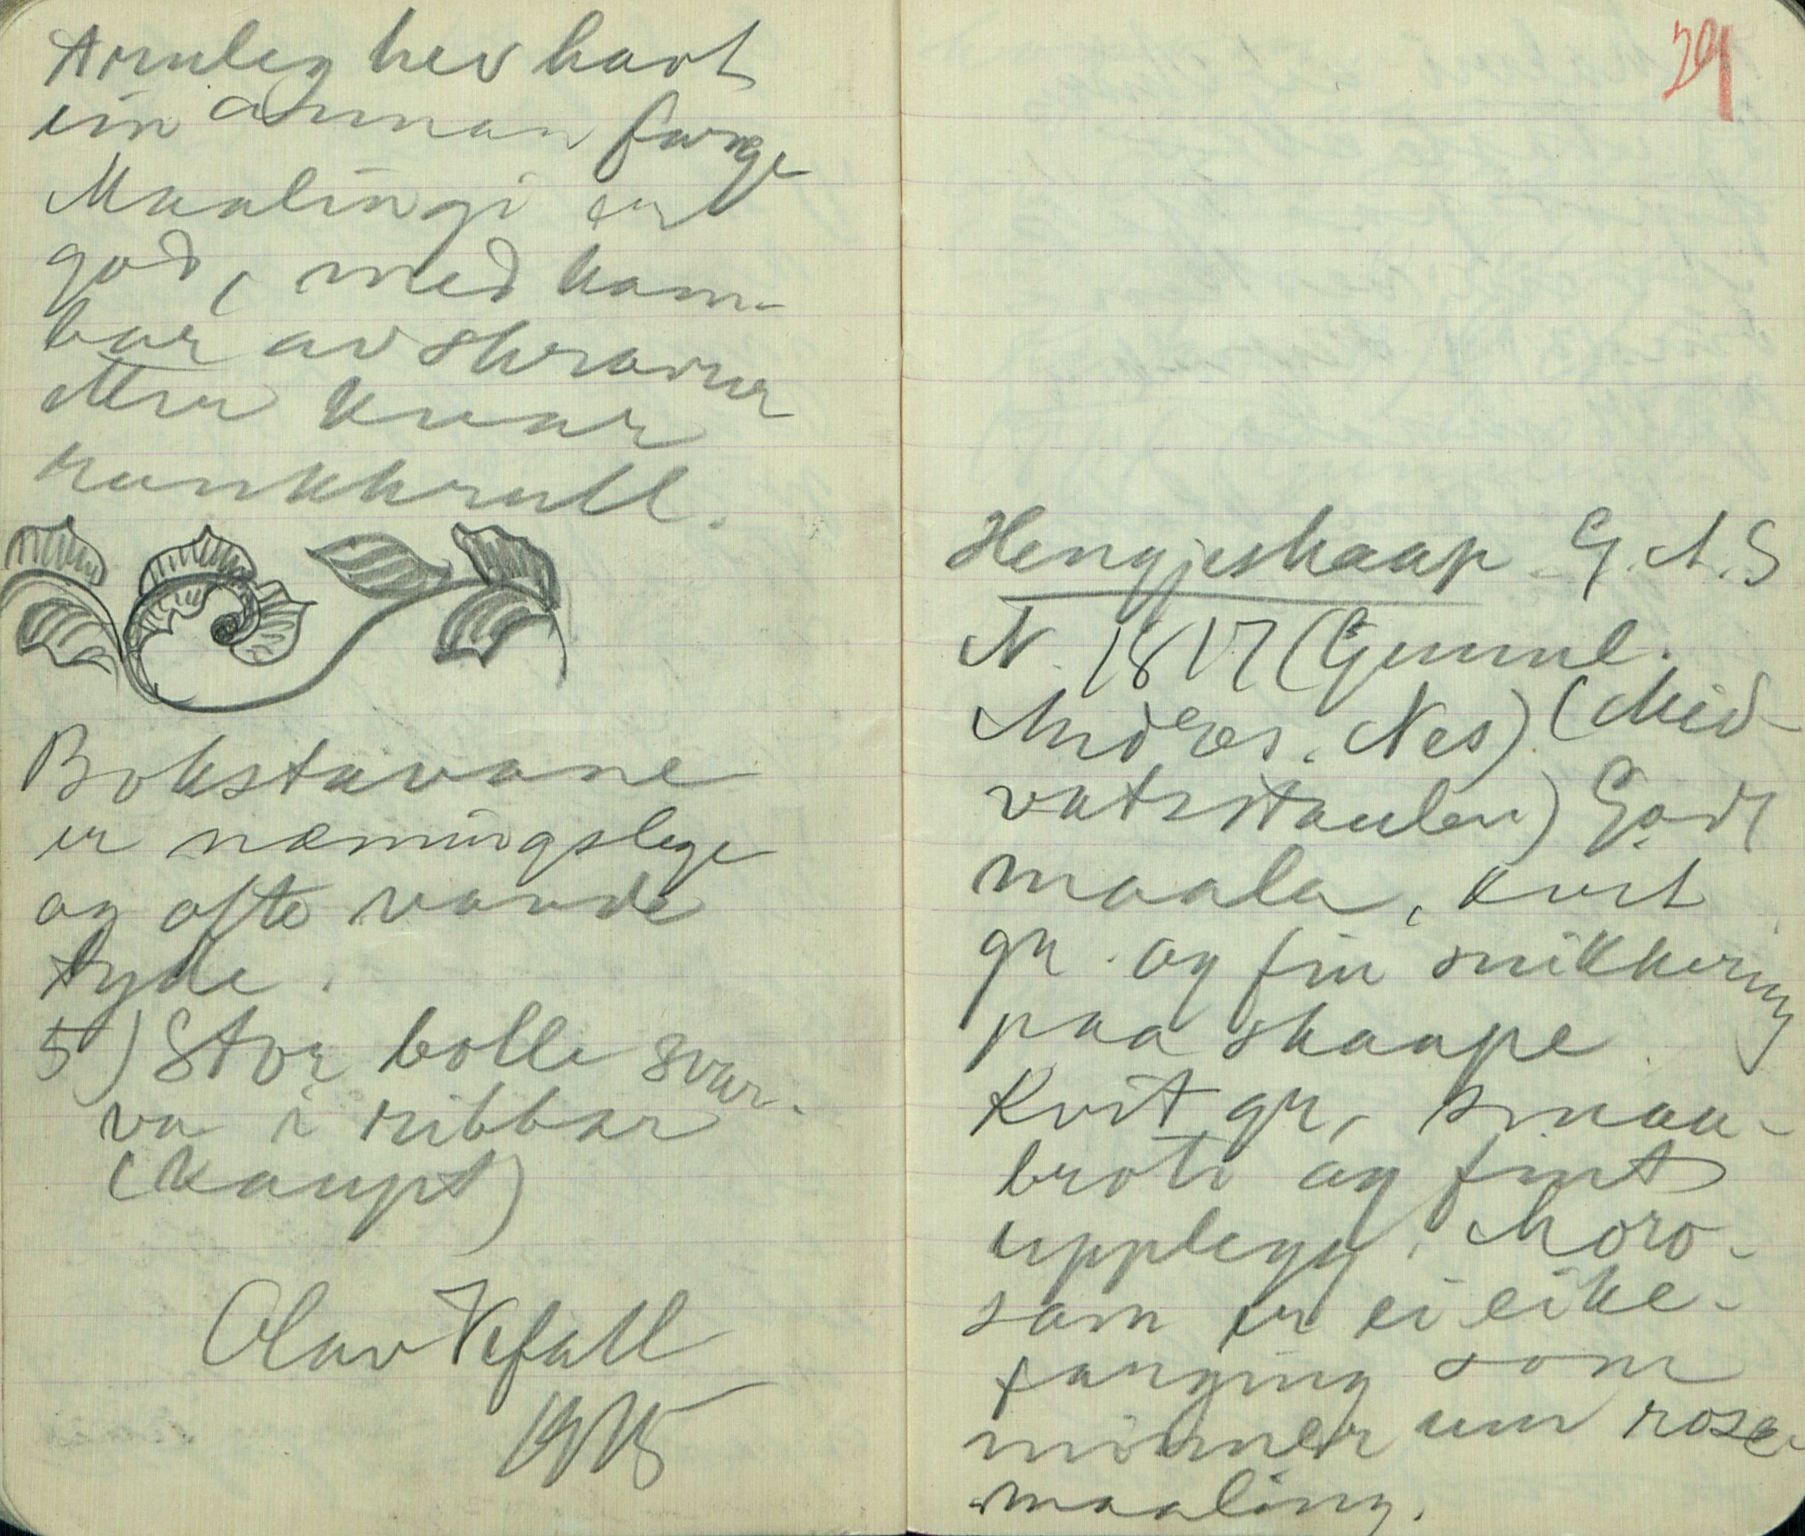 truleg hev havt
ein annan farge
Maalingi er
god, med kam-
bar av skraver
etter kvar
rankkrull.
Bokstavane
er næmingslege
og ofte vande
tyde.
5) Stor bolle svar-
va i ribbar
(kaupt)
Olav Vefall
1915
29
Hengjeskaap G. A. S
N. 1817 (Gunnl.
Andres. Nes) (Mid-
vatsstaulen) Godt
maala, kvit
gr. og fin snikkering
paa skaape.
Kvit gr, smaa-
brote og fint
upplegg. Moro-
sam er ei eike-
farging som
minner um rose-
maaling.